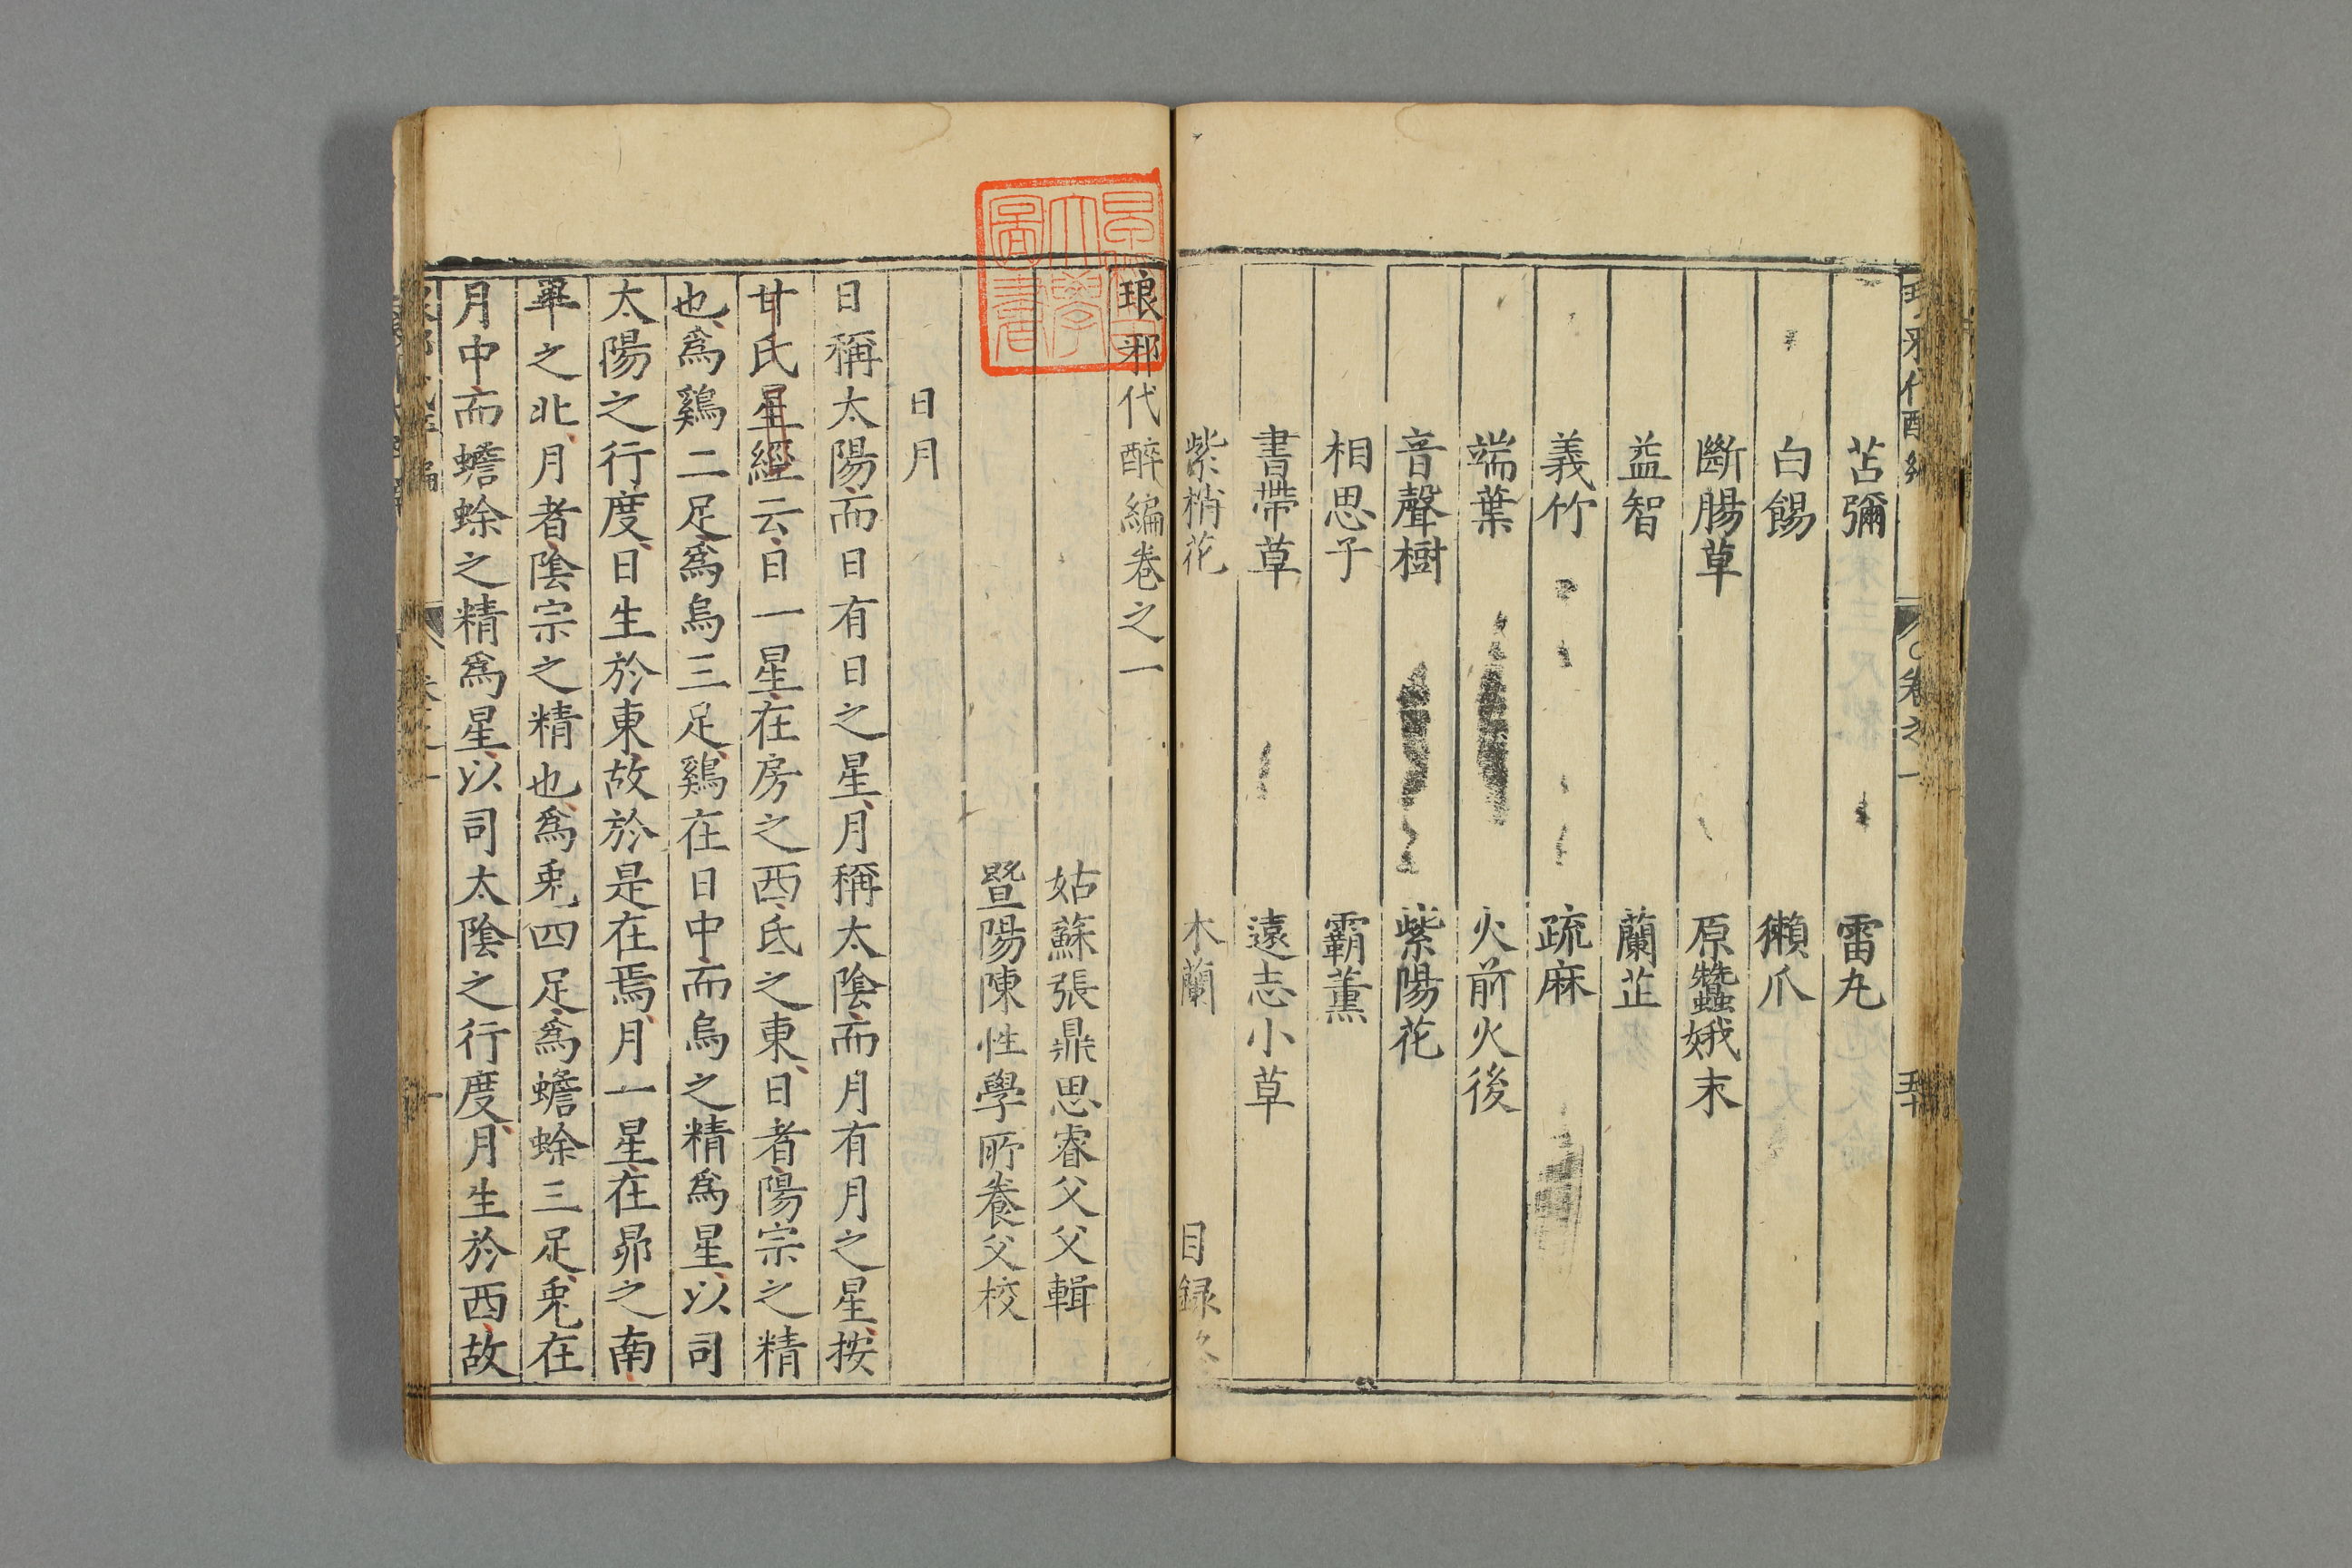 苫彌 雷丸
白餳 獺爪
斷腸草 原蠶娥末
益智 蘭芷
義竹 疏麻
端葉 火前火後
音聲樹 紫陽花
相思子 霸薰
書帶草 遠志小草
紫梢花 木蘭 目録
琅邪代醉編卷之一
姑蘇張鼎思睿父父輯
暨陽陳性學所養父校
日月
日稱太陽而日有日之星月稱太陰而月有月之星按
甘氏星經云日一星在房之西氐之東日者陽宗之精
也爲鷄二足爲烏三足鷄在日中而烏之精爲星以司
太陽之行度日生於東故於是在焉月一星在昴之南
畢之北月者陰宗之精也爲兎四足爲蟾蜍三足兎在
月中而蟾蜍之精爲星以司太陰之行度月生於西故